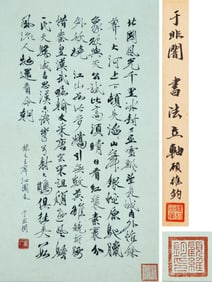 于非闇 書法立軸 顧維鈞
北國風光千里冰封萬里雪飄望長城內外惟
餘莽大河上下頓失滔滔山舞銀蛇原馳
象欲與天公試比高須晴日看紅裝素裹分
外妖嬈江山如此多嬌引無數英雄競折腰
惜秦皇漢武略輸文采唐宗宋祖稍遜風騷一代天
驕成吉思汗只識彎弓射大鵰俱往矣數
風流人物還看今朝
毛主席沁園春 于非闇